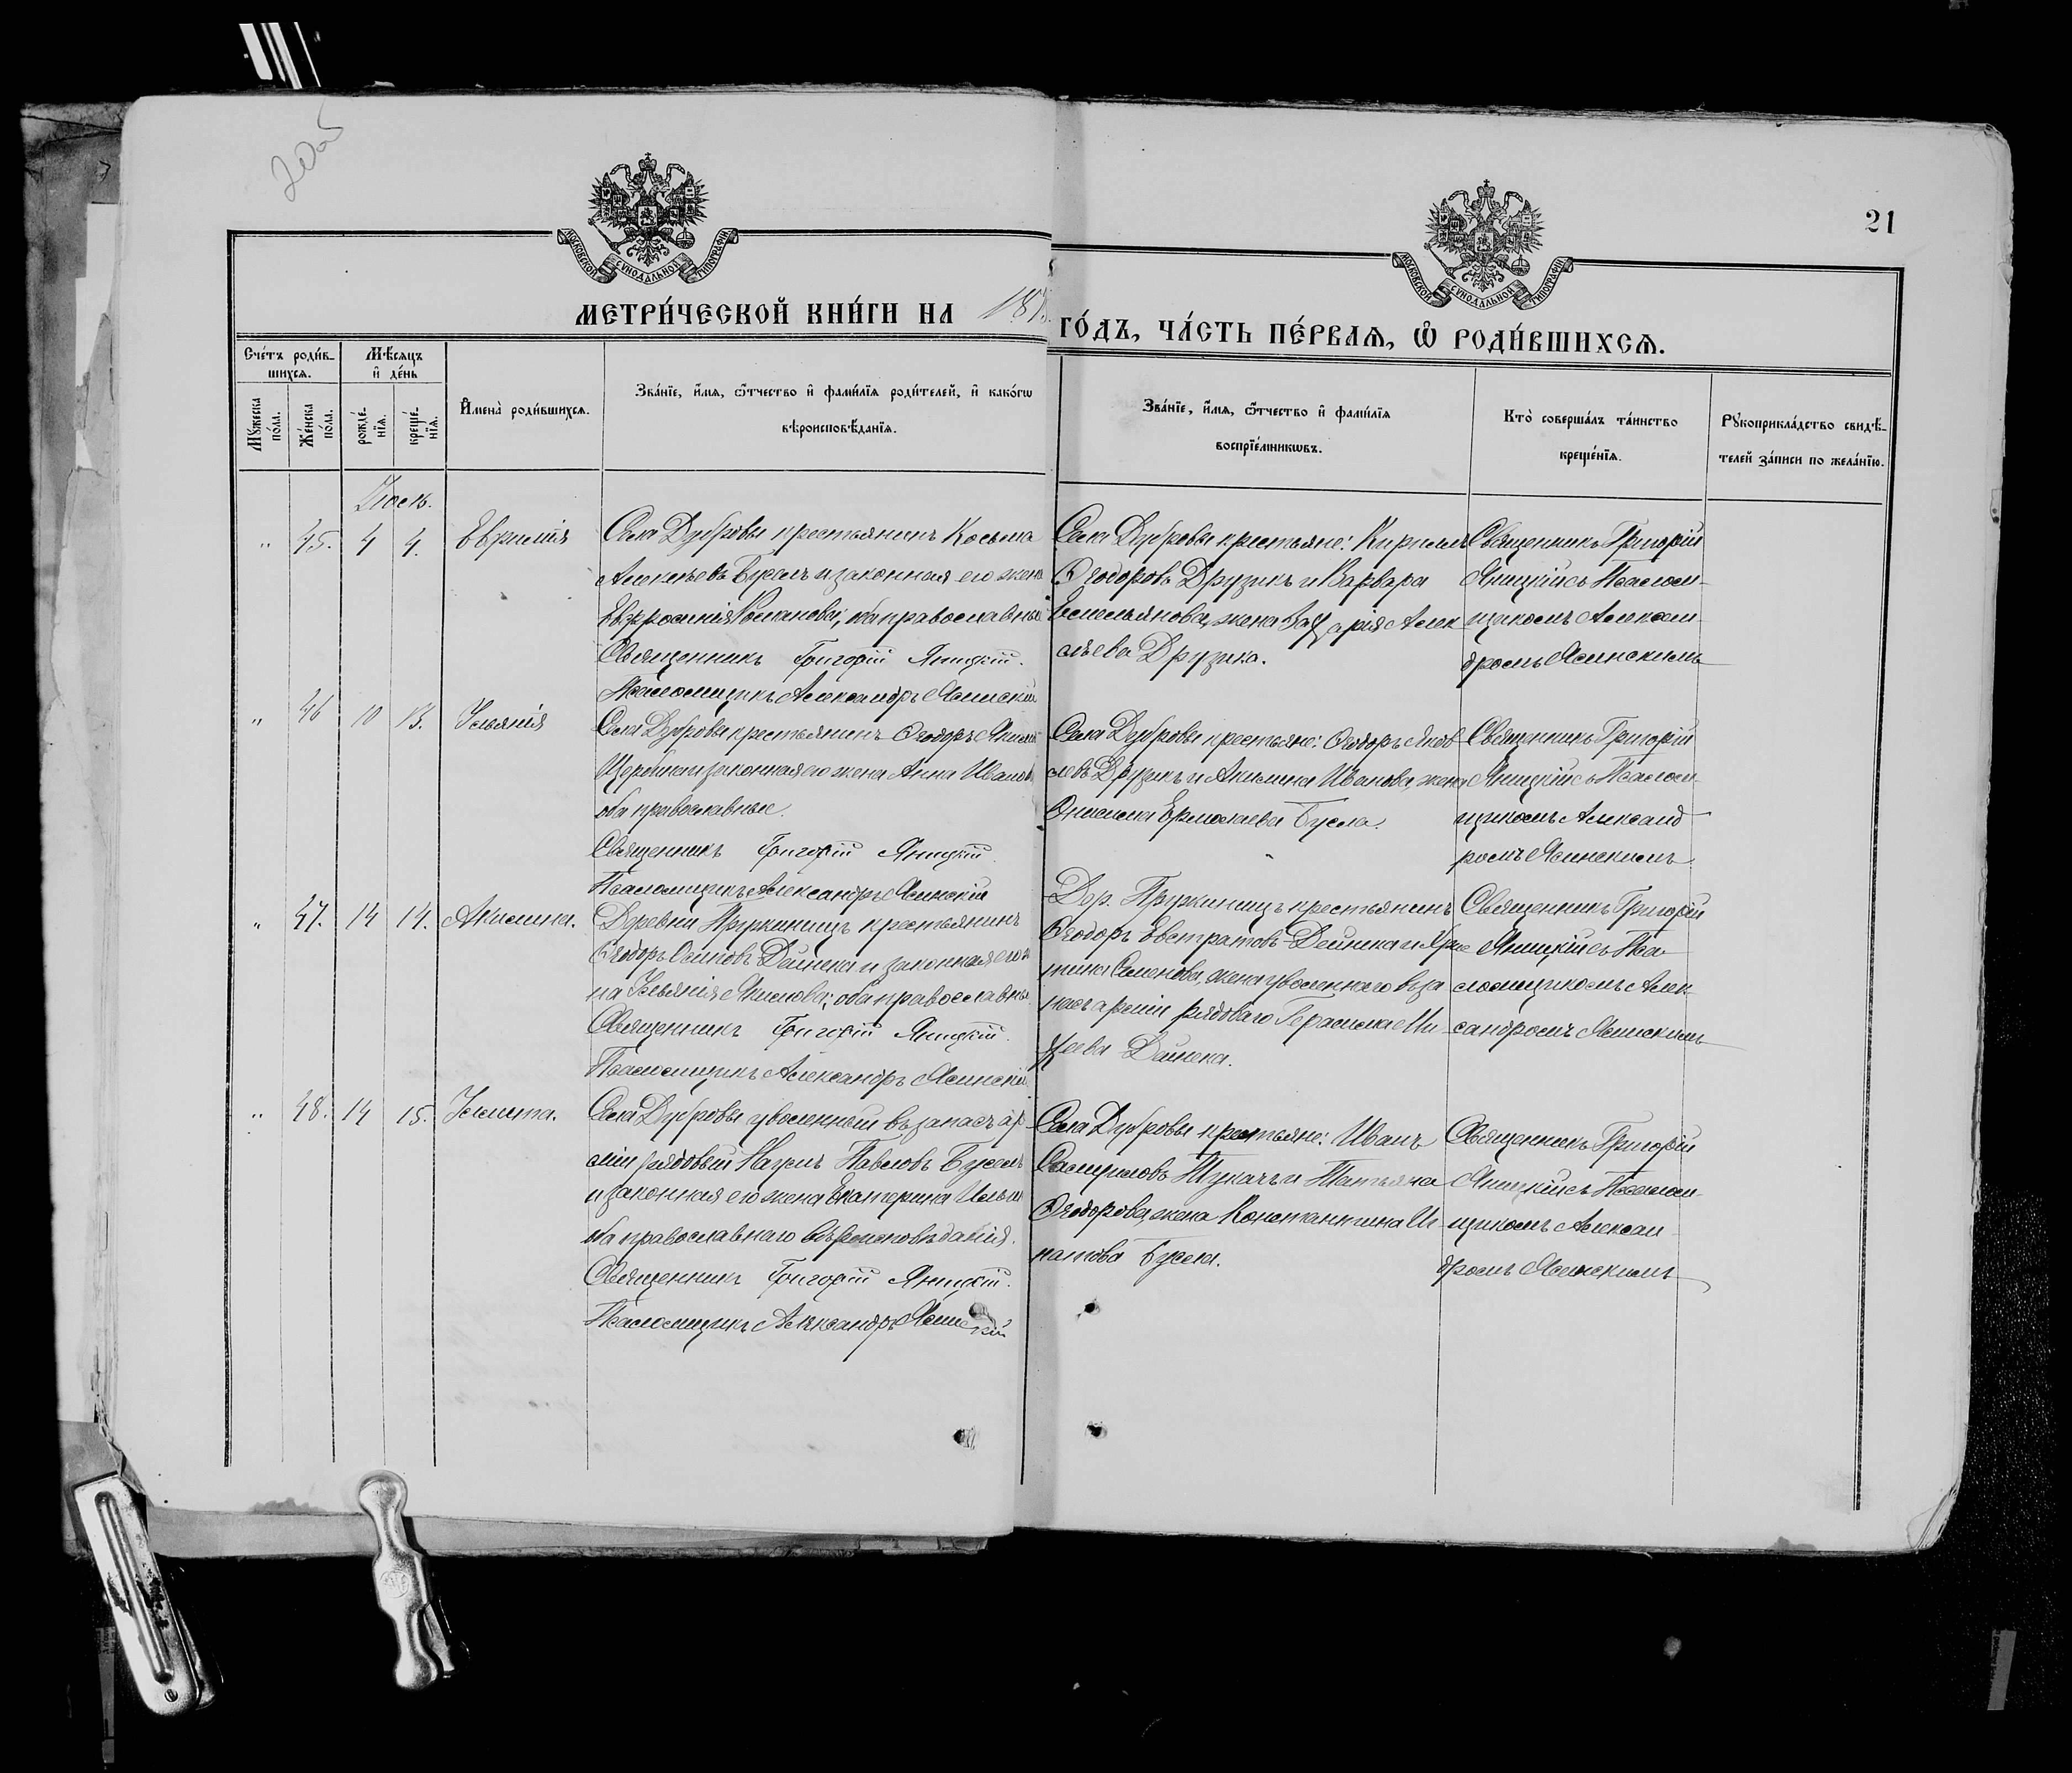 20об
21
МОСКОВСКОЙ СУНОДАЛЬНОЙ ТИПОГРАФІИ
МОСКОВСКОЙ СУНОДАЛЬНОЙ ТИПОГРАФІИ
МЕТРИ́ЧЕСКОЙ КНИ́ГИ НА 187
ГО́ДЪ, ЧА́СТЬ ПЕ́РВАѦ, Ѡ҆ РОДИ́ВШИХСѦ.
Сче́тъ роди́в-
шихсѧ.
Мѣ́сѧцъ
и҆ де́нь
Мꙋ́жеска
по́ла.
Же́нска
по́ла.
рожде́-
нїѧ.
креще́-
нїѧ.
И҆мена̀ роди́вшихсѧ.
Зва́нїе, и҆́мѧ, ѻ҆́тчество и҆ фами́лїѧ роди́телей, и҆ како́гѡ
вѣроисповѣ́данїѧ.
Зва́нїе, и҆́мѧ, ѻ҆́тчество и҆ фами́лїѧ
воспрїе́мникѡвъ.
Кто̀ соверша́лъ та́инство
креще́нїѧ.
Рꙋкоприкла́дство свидѣ́-
телей за́писи по жела́нїю.
Іюль.
" 45. 4 4. Евфимія
Села Дубровы крестьянинъ Косьма
Алексѣевъ Буселъ и законная его жена
Евфросинія Романова; оба православные
Священникъ Григорій Яницкій.
Псаломщикъ Александръ Ясинскій
Села Дубровы крестьяне: Кириллъ
Ѳеодоровъ Друзикъ и Варвара
Емельянова, жена Захарія Алек-
сѣева Друзика.
Священникъ Григорій
Яницкій съ Псалом-
щикомъ Алексан-
дромъ Ясинскимъ
" 46 10 13. Ульянія
Села Дубровы крестьянинъ Ѳеодоръ
Щербина и законная его жена Анна Иванова
оба православные.
Священникъ Григорій Яницкій.
Псаломщикъ Александръ Ясинскій
Села Дубровы крестьяне: Ѳеодоръ Яков-
левъ Друзикъ и Акилина Иванова, жена
Онисима Ермолаева Бусла.
Священникъ Григорій
Яницкій съ Псалом-
щикомъ Александ-
ромъ Ясинскимъ
" 47. 14 14. Акилина.
Деревни Пружиницъ крестьянинъ
Ѳеодоръ Осиповъ Дейнека и законная его же-
на Ульянія Якимова; оба православные.
Священникъ Григорій Яницкій.
Псаломщикъ Александръ Ясинскій.
Дер. Пружиницъ крестьянинъ
Ѳеодоръ Евстратовъ Дейнека и Хри-
стина Семенова, жена уволеннаго въ за-
пасъ арміи рядоваго Герасима Ми-
хеева Дейнека.
Священникъ Григорій
Яницкій съ Пса-
ломщикомъ Алек-
сандромъ Ясинскимъ
" 48. 14 15. Улита.
Села Дубровы уволенный въ запасъ ар-
міи рядовый Наумъ Павловъ Буселъ
и законная его жена Екатерина
оба православнаго вѣроисповѣданія.
Священникъ Григорій Яницкій.
Псаломщикъ Александръ Ясинскій
Села Дубровы крестьяне: Иванъ
Самуиловъ Ткачъ и Татьяна
Ѳеодорова, жена Константина Иг-
натова Бусла.
Священникъ Григорій
Яницкій съ Псалом-
щикомъ Алексан-
дромъ Ясинскимъ